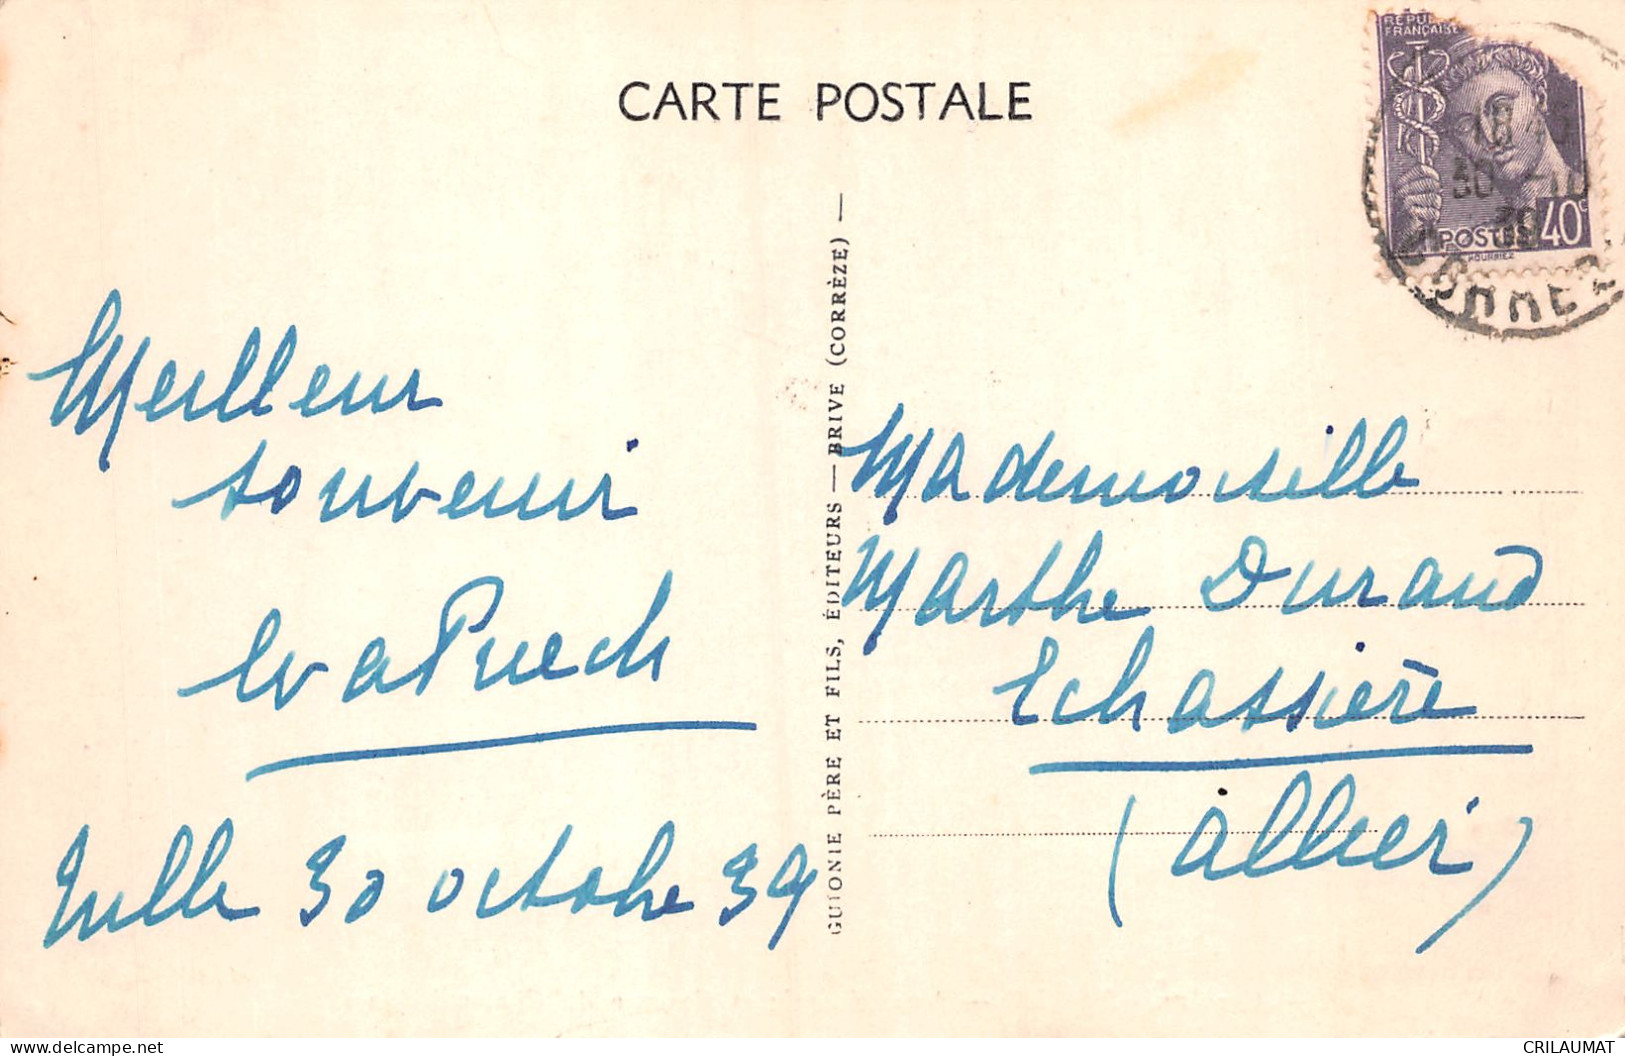 CARTE POSTALE
RÉPU
FRANÇAISE
POSTES 40c
30 -10
39
Meilleur
souvenir
Eva Puech
Tulle 30 octobre 39
GUIONIE PÈRE ET FILS, ÉDITEURS — BRIVE (CORRÈZE) —
Mademoiselle
Marthe Durand
Echassière
(Allier)
delcampe.net
CRILAUMAT